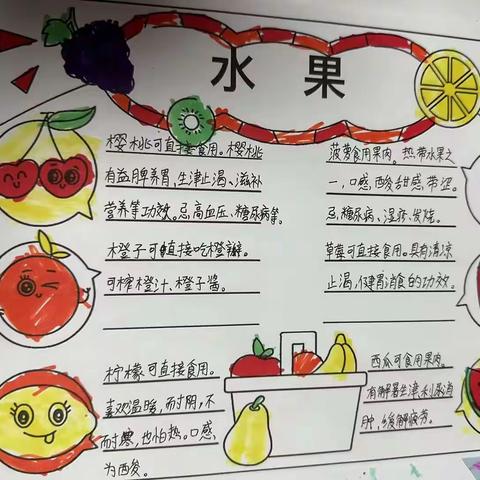 水 果
樱桃可直接食用。樱桃
有益脾养胃,生津止渴、滋补
营养等功效。忌高血压、糖尿病等。
橙子可直接吃橙瓣。
可榨橙汁、橙子酱。
柠檬可直接食用。
喜欢温暖,而耐阴,不
耐寒,也怕热。口感
为西俊。
菠萝食用果肉。热带水果之
一,口感,酸甜感,带涩。
忌,糖尿病、湿疹、发烧。
草莓可直接食用。具有清凉
止渴,健胃消食的功效。
西瓜可食用果肉。
有解暑生津,利尿消
肿,缓解疲劳。